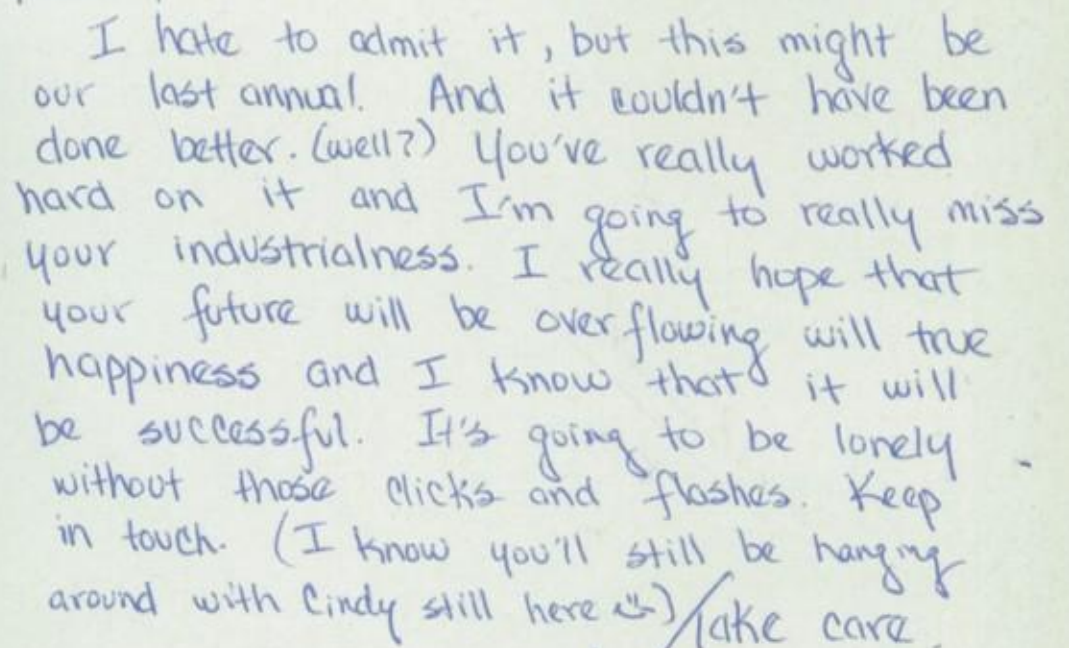 I hate to admit it, but this might be
our last annual. And it couldn't have been
done better. (well?) You've really worked
hard on it and I'm going to really miss
your industrialness. I really hope that
your future will be overflowing will true
happiness and I know that it will
be successful. It's going to be lonely
without those clicks and flashes. Keep
in touch. (I know you'll still be hanging
around with Cindy still here ☺) Take care.